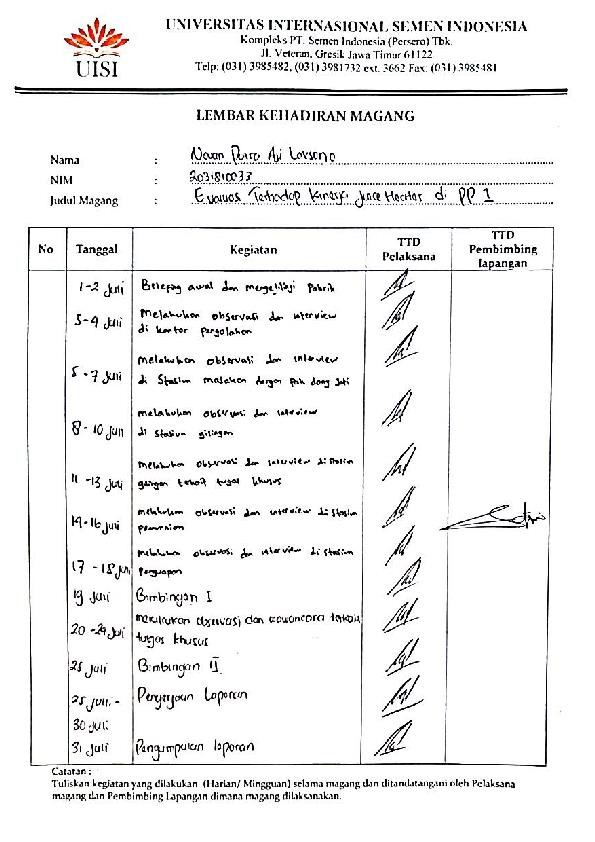 UISI
UNIVERSITAS INTERNASIONAL SEMEN INDONESIA
Kompleks PT. Semen Indonesia (Persero) Tbk.
Jl. Veteran, Gresik Jawa Timur 61122
Telp: (031) 3985482, (031) 3981732 ext. 3662 Fax: (031) 3985481
LEMBAR KEHADIRAN MAGANG
Nama : Novan Putra Aji
NIM : 2031810033
Judul Magang : Terhadap Kinerja Juice Heater di PP 1
No Tanggal Kegiatan TTD Pelaksana TTD Pembimbing lapangan
1-2 Juli awal dan pabrik
3-4 Juli Melakukan observasi dan interview
di kantor pengolahan
5-7 Juli melakukan observasi dan interview
di Stasiun masakan dengan pak
8-10 Juli melakukan observasi dan interview
di Stasiun gilingan
11-13 Juli melakukan observasi dan interview di Stasiun
tugas khusus
14-16 Juli melakukan observasi dan interview di Stasiun
pemurnian
17-18 Juli melakukan observasi dan interview di Stasiun
penguapan
19 Juli Bimbingan I
20-24 Juli melakukan observasi dan wawancara terkait
tugas khusus
25 Juli Bimbingan II
25 Juli - Pengerjaan Laporan
30 Juli
31 Juli Pengumpulan laporan
Catatan :
Tuliskan kegiatan yang dilakukan (Harian/ Mingguan) selama magang dan ditandatangani oleh Pelaksana
magang dan Pembimbing Lapangan dimana magang dilaksanakan.